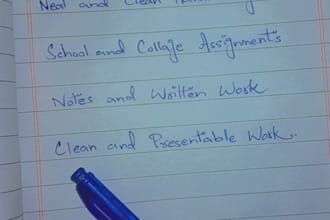 Neat and Clean
School and Collage Assignments
Notes and Written Work
Clean and Presentable Work.